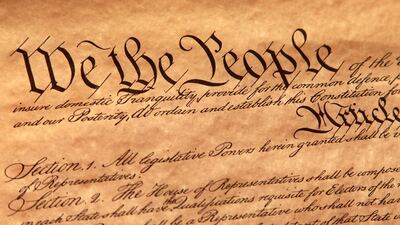 We the People of the
insure domestic Tranquility, provide for the common defence,
and our Posterity, do ordain and establish this Constitution for
Article
Section. 1. All legislative Powers herein granted shall be
of Representatives.
Section. 2. The House of Representatives shall be compose
in each State shall have the Qualifications requisite for Electors of the
be a Representative who shall not have
of that State in